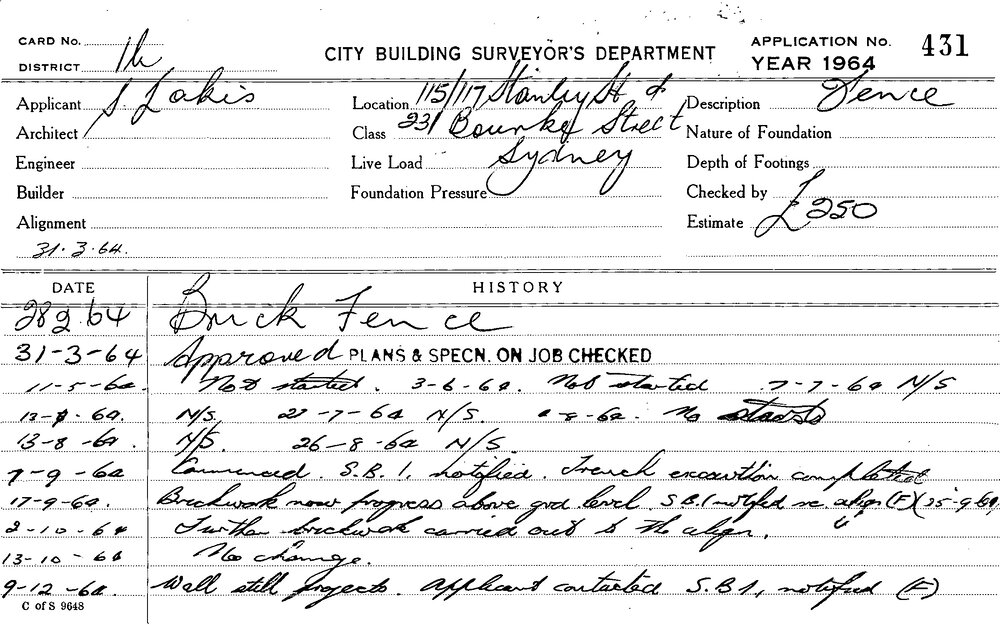 CARD No.
DISTRICT 1h
CITY BUILDING SURVEYOR'S DEPARTMENT
APPLICATION No. 431
YEAR 1964
Applicant S. Lakis
Location 115/117 Stanley St &
Description Fence
Architect
Class 231 Bourke Street
Nature of Foundation
Engineer
Live Load Sydney
Depth of Footings
Builder
Foundation Pressure
Checked by
Alignment
Estimate £250
31.3.64.
DATE
HISTORY
28 2 64 Brick Fence
31-3-64 Approved PLANS & SPECN. ON JOB CHECKED
11-5-64. Not started. 3-6-64. Not started 7-7-64 N/S
64. N/S. 27-7-64 N/S. 8-64. No
13-8-64. N/S. 26-8-64 N/S.
7-9-64 Commenced. S.B.I. notified. Trench excavation completed
17-9-64. Brickwork now progress above grd level. S.B.I notified re align (F) (25-9-64
2-10-64 Further brickwork carried out to the align. " "
13-10-64 No change.
9-12-64. Wall still projects. Applicant contacted S.B.I, notified (F)
C of S 9648